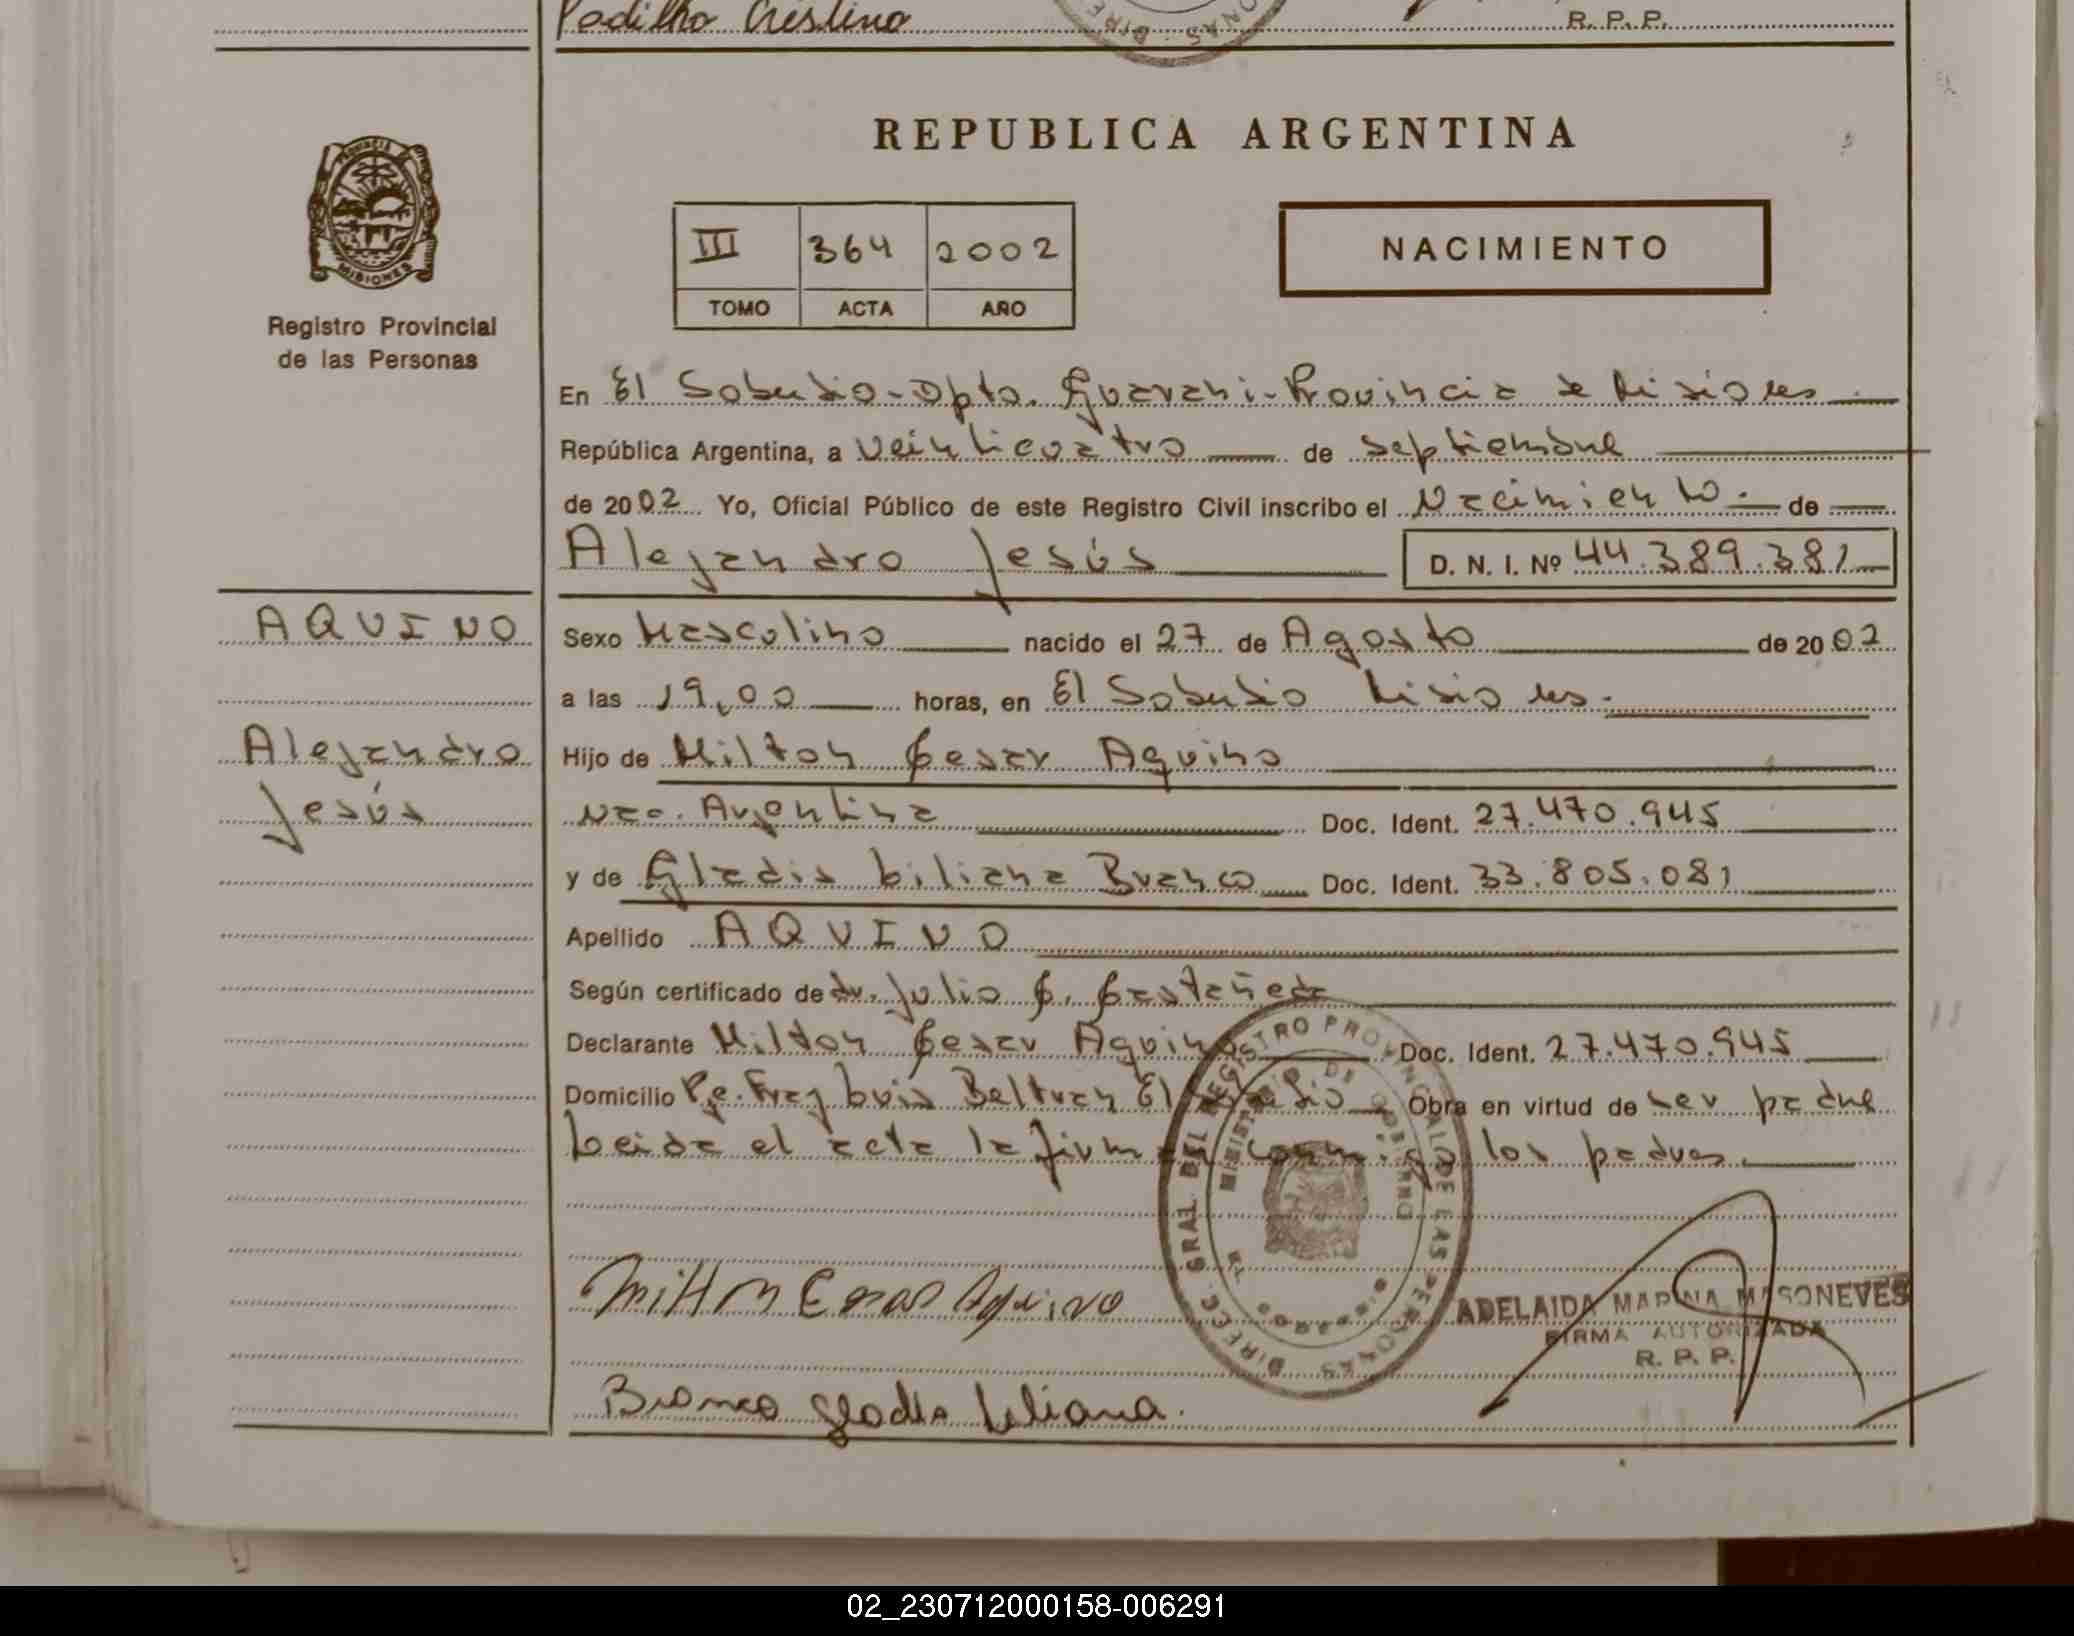 Padilha Cristina
R. P. P.
REPUBLICA ARGENTINA
III 364 2002
TOMO ACTA AÑO
NACIMIENTO
MISIONES
Registro Provincial
de las Personas
En El Soberbio-Dpto. Guarani-Provincia de Misiones
República Argentina, a veinticuatro de septiembre
de 2002 Yo, Oficial Público de este Registro Civil inscribo el Nacimiento. de
Alejandro Jesús D. N. I. Nº 44.389.381
AQUINO
Alejandro
Jesús
Sexo Masculino nacido el 27 de Agosto de 2002
a las 19,00 horas, en El Soberbio Misiones.
Hijo de Milton Cesar Aquino
Nac. Argentina Doc. Ident. 27.470.945
y de Gladis Liliana Branco Doc. Ident. 33.805.081
Apellido AQUINO
Según certificado de dr. Julio C. Castañeda
Declarante Milton Cesar Aquino Doc. Ident. 27.470.945
Domicilio Pje. Fray Luis Beltran El Soberbio Obra en virtud de ser padre
Leida el acta la firman conmigo los padres.
DIRECC. GRAL DEL REGISTRO PROVINCIAL DE LAS PERSONAS
MINISTERIO DE GOBIERNO
Milton Cesar Aquino
ADELAIDA MARINA MASONEVES
FIRMA AUTORIZADA
R. P. P.
Branco Gladis Liliana.
02_230712000158-006291